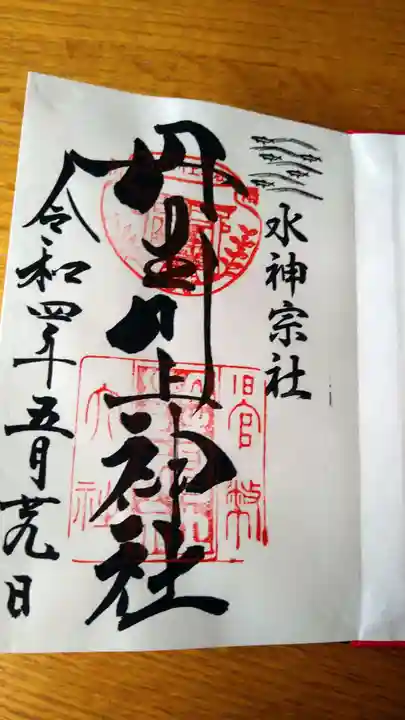 水神宗社
丹生川上神社
旧官幣
大社
令和四年五月廿九日